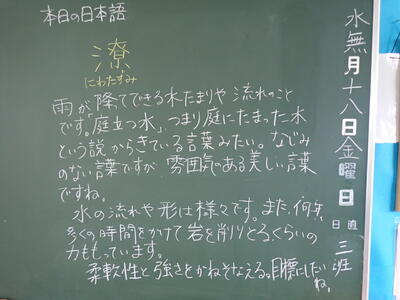 本日の日本語
潦
にわたずみ
雨が降てできる水たまりや流れのこと
です。「庭立つ水」、つまり庭にたまった水
という説からきている言葉みたい。なじみ
のない言葉ですが、雰囲気のある美しい言葉
ですね。
水の流れや形は様々です。また、何年、
多くの時間をかけて岩を削りとるくらいの
力ももっています。
柔軟性と強さをかねそなえる。目標にしたい
ね。
水無月十八日金曜日
日直
三班